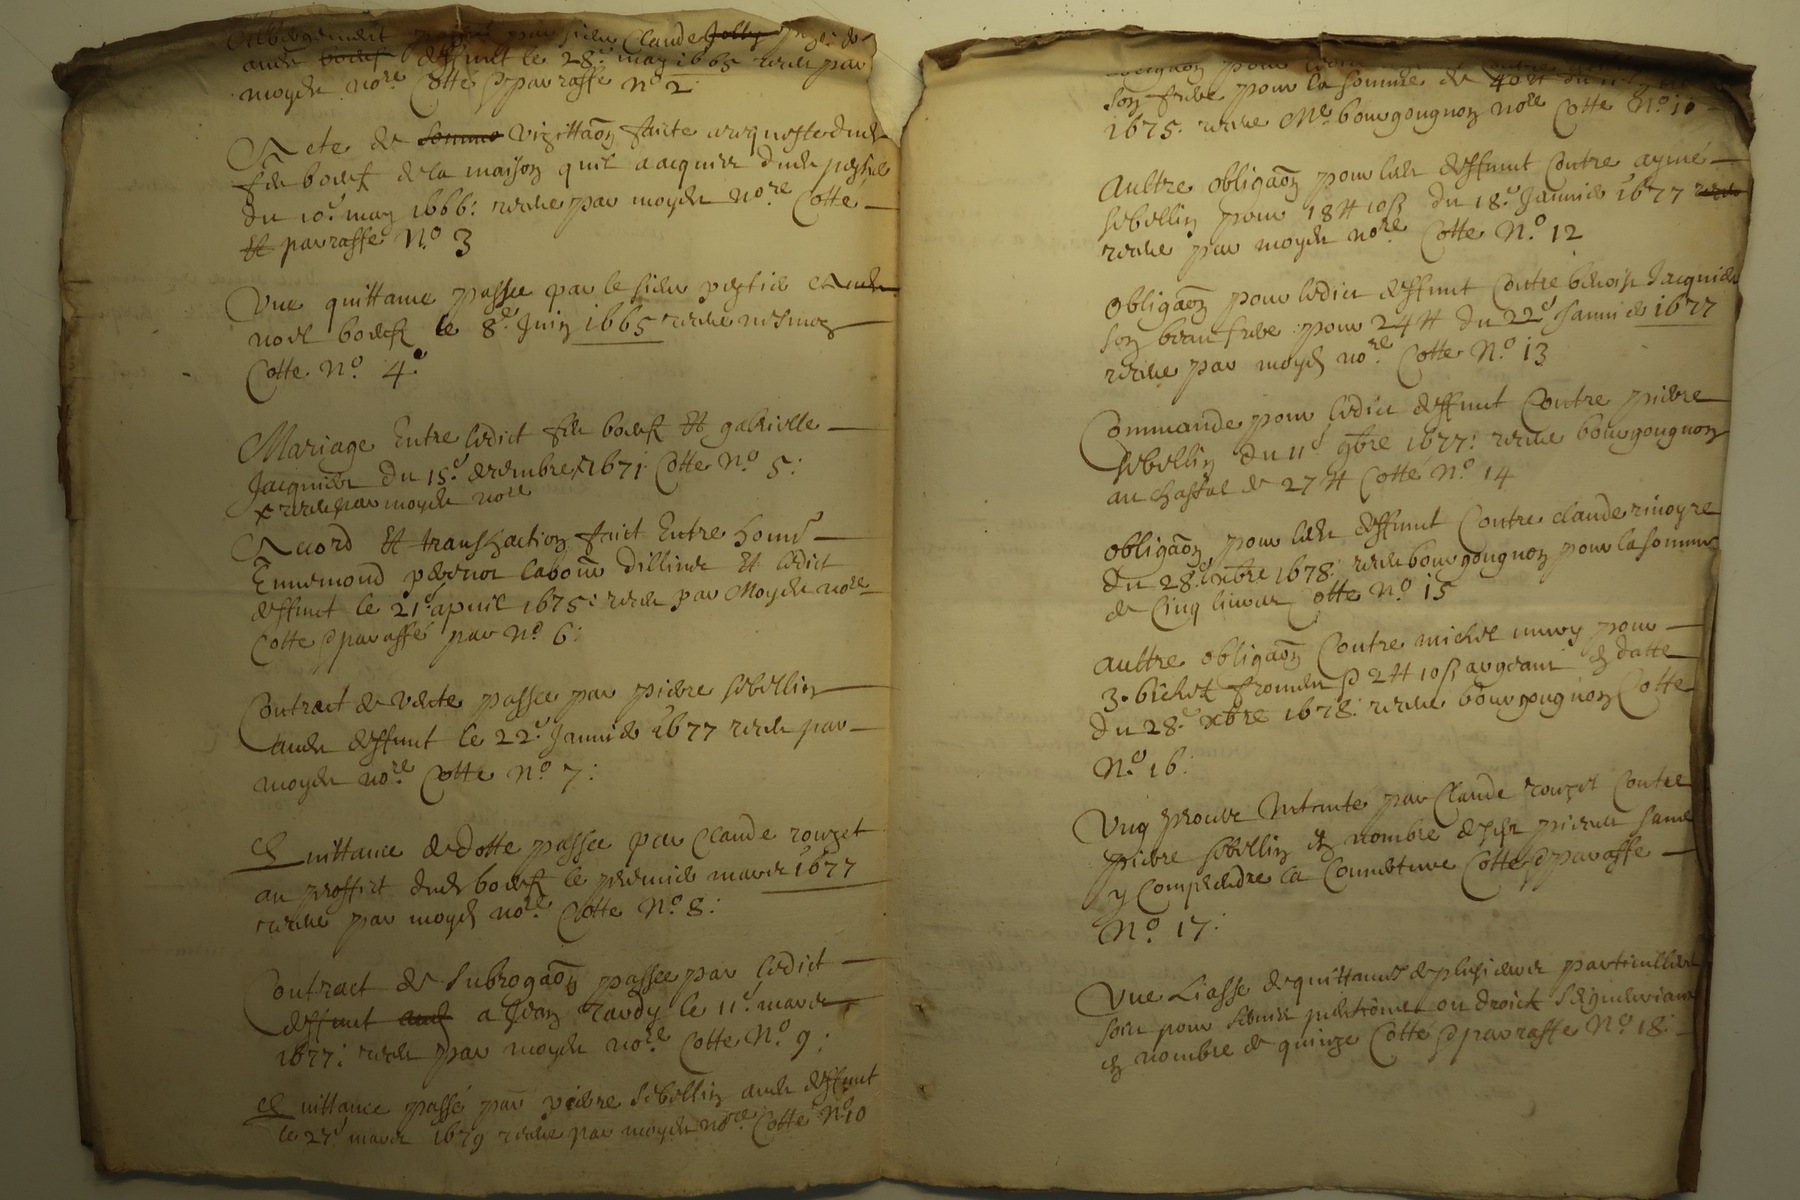 passé par sieur Claude Jolly
audit boeuf deffunct le 28e may 1665 receu par
moyne nore Cotté & parraffé No 2
Acte de somme vizittaon faite a requeste dudit
feu boeuf de la maison quil a acquise dudit
du 10e may 1666: receue par moyne nore Cotté
Et parraffe No 3
Une quittance passee par le sieur audit
noel boeuf le 8e Juin 1665 receue
Cotte No 4
Mariage Entre ledict feu boeuf Et gabrielle
Jacquier du 15e decembre 1671 Cotte No 5:
x receu par moyne nore
Accord Et transaction faict Entre honne
Ennemond laboure dillinc Et ledict
deffunct le 21e apvril 1675: receu par Moyne nore
Cotte & paraffé par No 6:
Contract de vente passee par pierre sebellin
audit deffunct le 22e Janvier 1677 receu par
moyne nore Cotte No 7:
Quittance de dotte passee par Claude rouzet
au proffict dudit boeuf le premier mars 1677
receue par moyne nore Cotte No 8:
Contract de subrogaon passee par ledict
deffunct aud a Jean Tardy le 11e mars
1677: receu par moyne nore Cotte No 9:
Quittance passé par pierre sebellin audit deffunct
le 27e mars 1679 receue par moyne nore Cotte No 10
obligaon pour
son frere pour la somme de
1675: receue Me bourgougnon nore Cotte No 11
Aultre obligaon pour ledit deffunct Contre aymé
sebellin pour 18 ₶ 10 ß du 18e Janvier 1677 receue
receue par moyne nore Cotte No 12
Obligaon pour ledict deffunct Contre benoist Jacquier
son beau frere pour 24 ₶ du 22e Janvier 1677
receue par moyne nore Cotte No 13
Commande pour ledict deffunct Contre pierre
sebellin du 11e 9bre 1677: receue bourgougnon
au chastal de 27 ₶ Cotte No 14
Obligaon pour ledit deffunct Contre claude rinoyre
du 28e xbre 1678: receue bourgougnon pour la somme
de Cinq livres Cotte No 15
Aultre obligaon Contre michel pour
3. bichet froment & 2 ₶ 10 ß argeant en datte
du 28e xbre 1678: receue bourgougnon Cotte
No 16:
Ung proces Intante par Claude rouzet Contre
pierre sebellin en nombre de sept pieces sans
y Comprendre la Couverture Cotte & paraffe
No 17:
Une Liasse de quittances de plusieurs particulliers
soit pour ou droict seigneuriaux
en nombre de quinze Cotté & parraffe No 18: